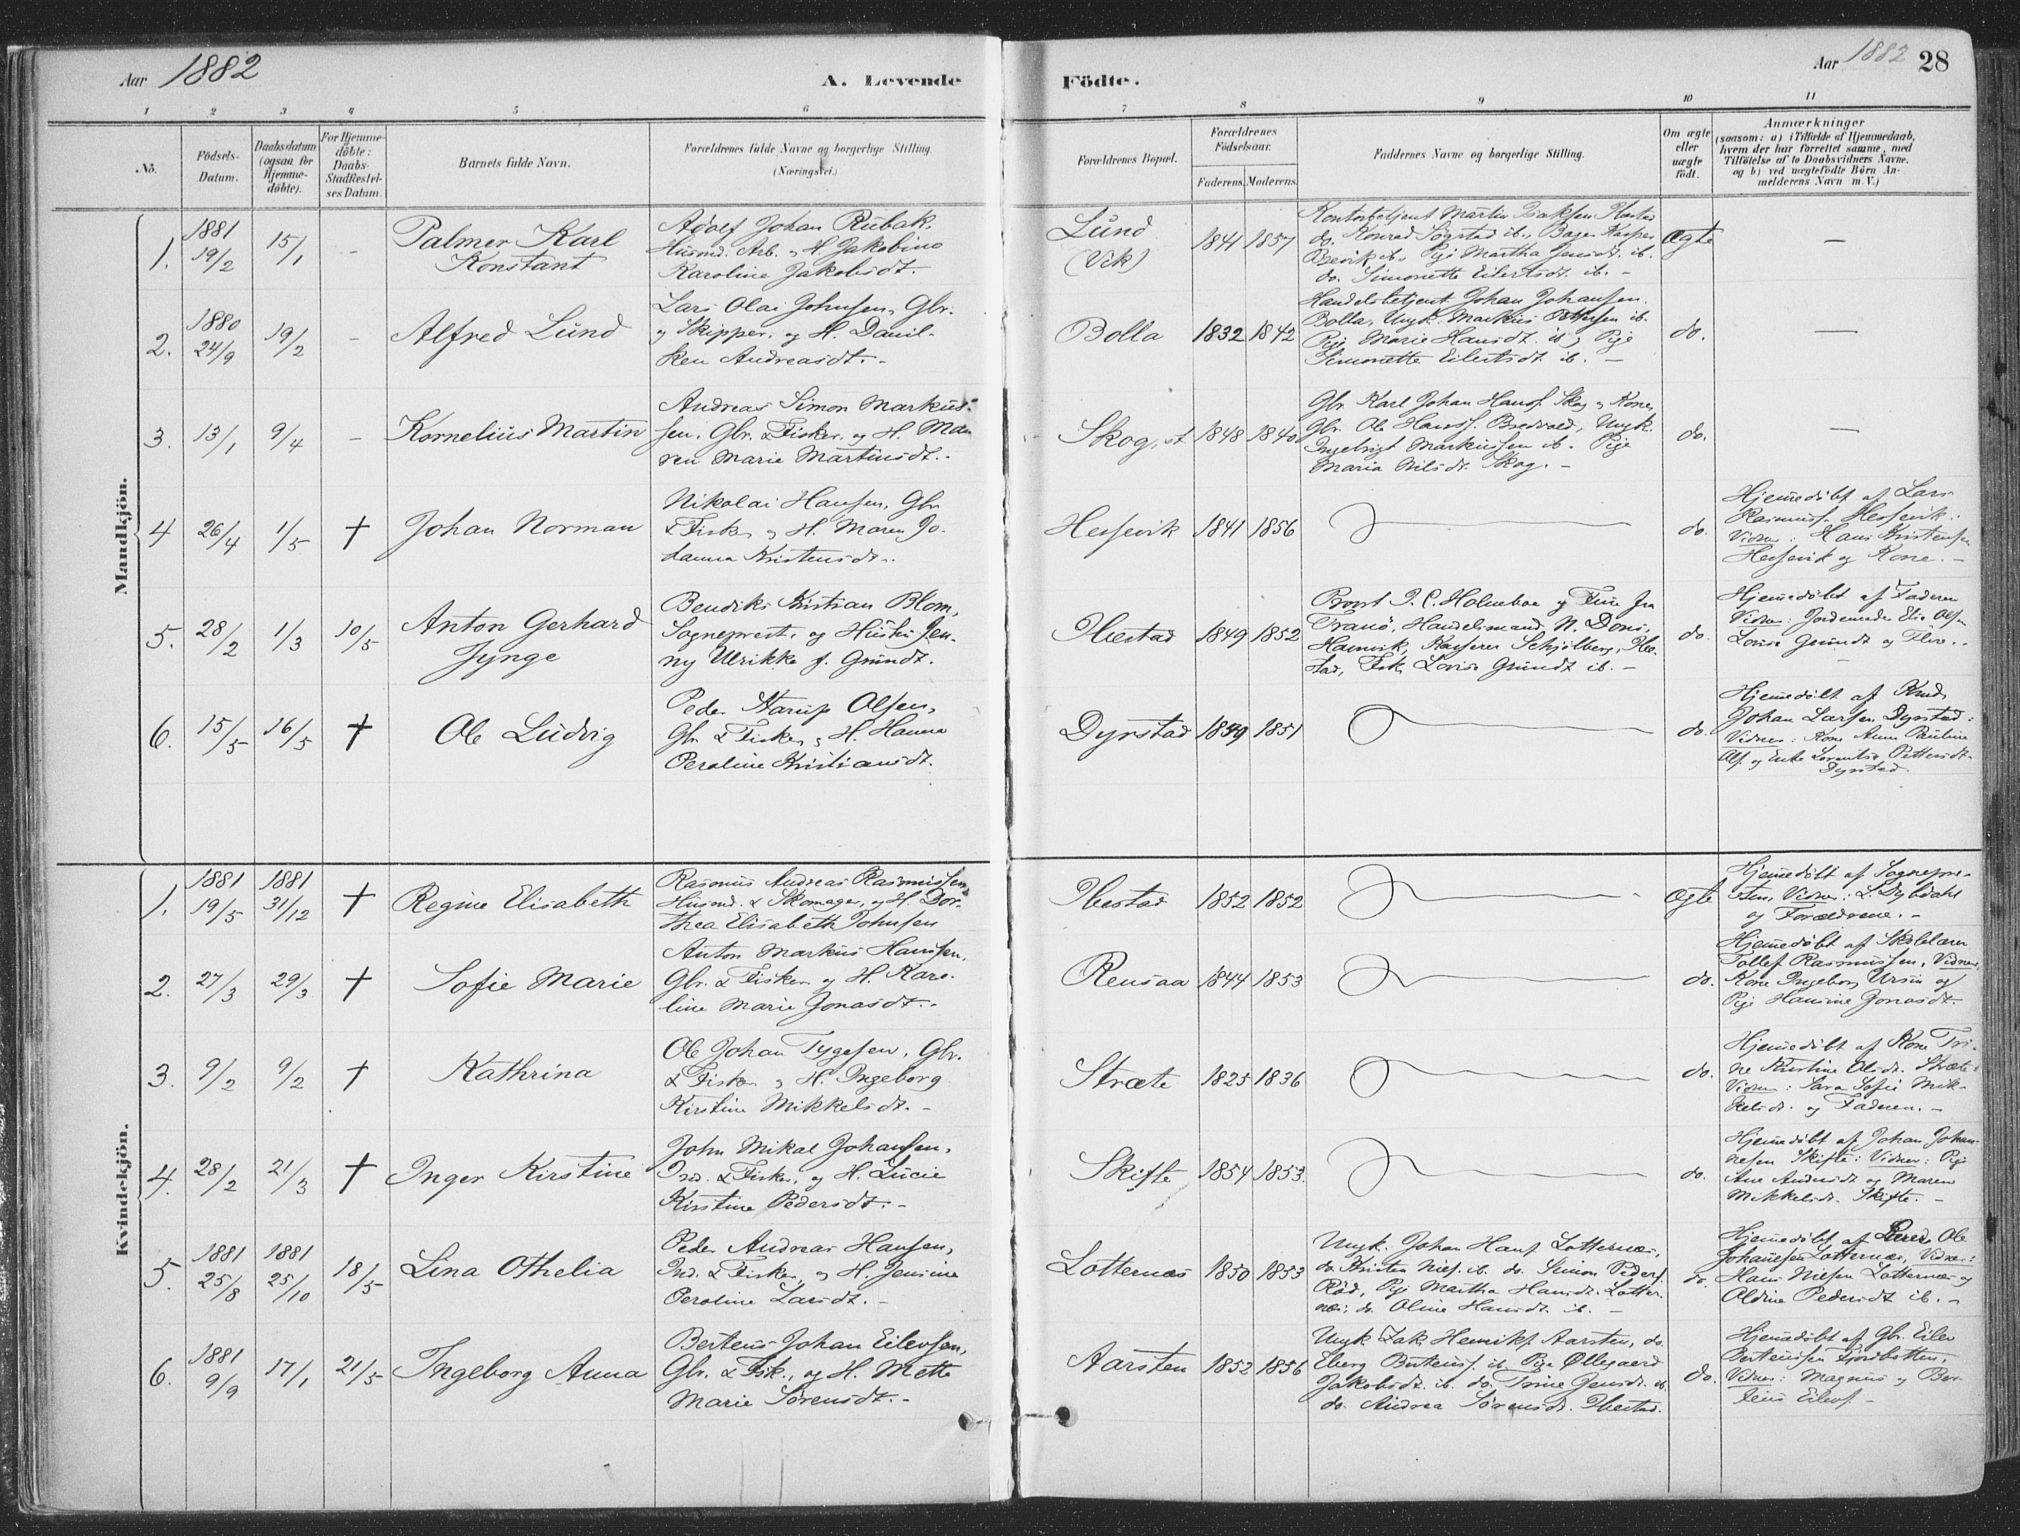 Aar 1882
A. Levende
Födte.
Aar 1882 28
1 2 3 4 5 6 7 8 9 10 11
No.
Födsels-
Datum.
Daabsdatum
(ogsaa for
Hjemme-
döbte).
For Hjemme-
döbte:
Daabs-
Stadfæstel-
ses Datum.
Barnets fulde Navn.
Forældrenes fulde Navne og borgerlige Stilling.
(Næringsvei.)
Forældrenes Bopæl.
Forældrenes
Födselsaar.
Faderens. Moderens.
Faddernes Navne og borgerlige Stilling.
Om ægte
eller
uægte
födt.
Anmærkninger
(saasom: a) i Tilfælde af Hjemmedaab,
hvem der har forrettet samme, med
Tilföielse af to Daabsvidners Navne.
og b) ved uægtefödte Börn An-
melderens Navn m. V.)
Mandkjön.
1. 1881 19/2 15/1 -
Palmer Karl
Konstant
Adolf Johan Rubak,
Husmd. Arb. og H. Jakobine
Karoline Jakobsdt.
Lund
(Vik)
1841 1857
Kontorbetjent Martin Isaksen
do. Konrad Søgstad ib.,
Pige Martha Jensdt. ib.
do. Simonette Eilertsdt ib. -
Ægte
—
2. 1880 24/9 19/2 -
Alfred Lund
Lars Olai Johnsen, Gbr.
og Skipper, og H. Danil-
ken Andreasdt. -
Bolla
1832 1842
Handelsbetjent Johan Johansen
Bolla, Ungk. Markus Ottesen ib.
Pige Marie Hansdt. ib, Pige
Simonette Eilertsdt ib. -
do.
—
3. 13/1 9/4 -
Kornelius Martin
Andreas Simon Markus-
sen, Gbr. & Fisker, og H. Ma-
ren Marie Martinusdt.
Skog,
1848 1840
Gbr. Karl Johan Hansf. Skog og Kone,
Gbr. Ole Hansf. Bredvold, Ungk.
Ingebrigt Markussen ib. Pige
Maria Nilsdt. Skog. -
do.
—
4 26/4 1/5 †
Johan Norman
Nikolai Hansen, Gbr
& Fisker og H. Maren Jo-
hanna Kristensdt.
Hessevik
1841 1856
do.
Hjemmedøbt af Lars
Rasmusf. Hessevik:
Vidner: Hans Kristensen
Hessevik og Kone. -
5. 28/2 1/3 10/5
Anton Gerhard
Jynge
Bendiks Kristian Blom,
Sogneprest, og Hustru Jen-
ny Ulrikke f. Grundt.
Ibestad
1849 1852
Provst J. C. Holmboe og Frue fra
Tranø, Handelsmand N. Dons,
Hamvik, Kasserer Schjölberg, Ibe-
stad, Frk. Lovise Grundt ib. -
do.
Hjemmedøbt af Faderen
Vidner: Jordemoder Olsen
Lovise Grundt og Flere. -
6. 15/5 16/5 †
Ole Ludvig
Peder Starup Olsen,
Gbr & Fisker, og H. Hanna
Peroline Kristiansdt.
Dyrstad
1839 1851
do.
Hjemmedøbt af Knud
Johan Larsen Dyrstad:
Vidner: Kone Anne Pauline
Olsf. og Enke Lorentse Pettersdt.
Dyrstad.
Kvindekjön.
1. 1881 19/5 1881 31/12 †
Regine Elisabeth
Rasmus Andreas Rasmussen
Husmd. & Skomager, og H. Dor-
thea Elisabeth Johnsen
Ibestad
1852 1852
Ægte
Hjemmedøbt af Sognepre-
sten, Vidner: L. Dybdahl
og Forældrene. -
2. 27/3 29/3 †
Sofie Marie
Anton Markus Hansen,
Gbr. & Fisker og H. Karo-
line Marie Jonasdt. -
Rensaa
1844 1853
do.
Hjemmedøbt af Skolelærer
Tollef Rasmussen, Vidner,
Kone Ingeborg Ursin og
Pige Hansine Jonasdt.
3. 9/2 9/2 †
Kathrina
Ole Johan Tygesen, Gbr.
& Fisker og H. Ingeborg
Kirstine Mikkelsdt. -
Stræte
1825 1836
do.
Hjemmedøbt af Kone Tri-
ne Kristine Olsdt. Stræte
Vidner: Sara Sofie Mik-
kelsdt. og Faderen. -
4. 28/2 21/3 †
Inger Kirstine
John Mikal Johansen,
Ind. & Fisker, og H. Lucie
Kirstine Pedersdt. -
Skifte
1854 1853.
do.
Hjemmedøbt af Johan Johan-
nesen Skifte: Vidner: Pige
Ane Andersdt og Maren
Mikkelsdt. Skifte. -
5. 1881 25/8 1881 25/10 18/5
Lina Othelia
Peder Andreas Hansen,
Ind. & Fisker, og H. Jensine
Peroline Larsdt. -
Lotternæs
1850 1853
Ungk. Johan Hansf. Lotternæs,
do. Kristen Nilsf. ib. do. Simon Pedersf.
Rød, Pige Martha Hansdt. Lotter-
næs, do. Oline Hansdt. ib. -
do.
Hjemmedøbt af Lærer Ole
Johannesen Lotternæs, Vidner:
Hans Nielsen Lotternæs og
Aldine Pedersdt ib. -
6. 1881 9/9 17/1 21/5
Ingeborg Anna
Berteus Johan Eilevsen,
Gbr. & Fisk., og H. Mette
Marie Sørensdt. -
Aarsten
1852 1856
Ungk. Isak Henriksf. Aarsten, do.
Eberg Berteusf. ib. Pige Øllegaard
Jakobsdt. ib. do. Trine Jensdt. ib.
do. Andrea Sørensdt. Ibestad.
do.
Hjemmedøbt af Gbr. Eilev
Berteussen Fjordbotten,
Vidner: Magnus og Ber-
teus Eilevsf. -